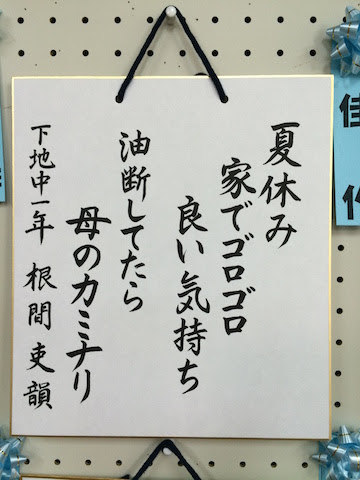 夏休み
家でゴロゴロ
良い気持ち
油断してたら
母のカミナリ
下地中一年 根間吏韻
佳